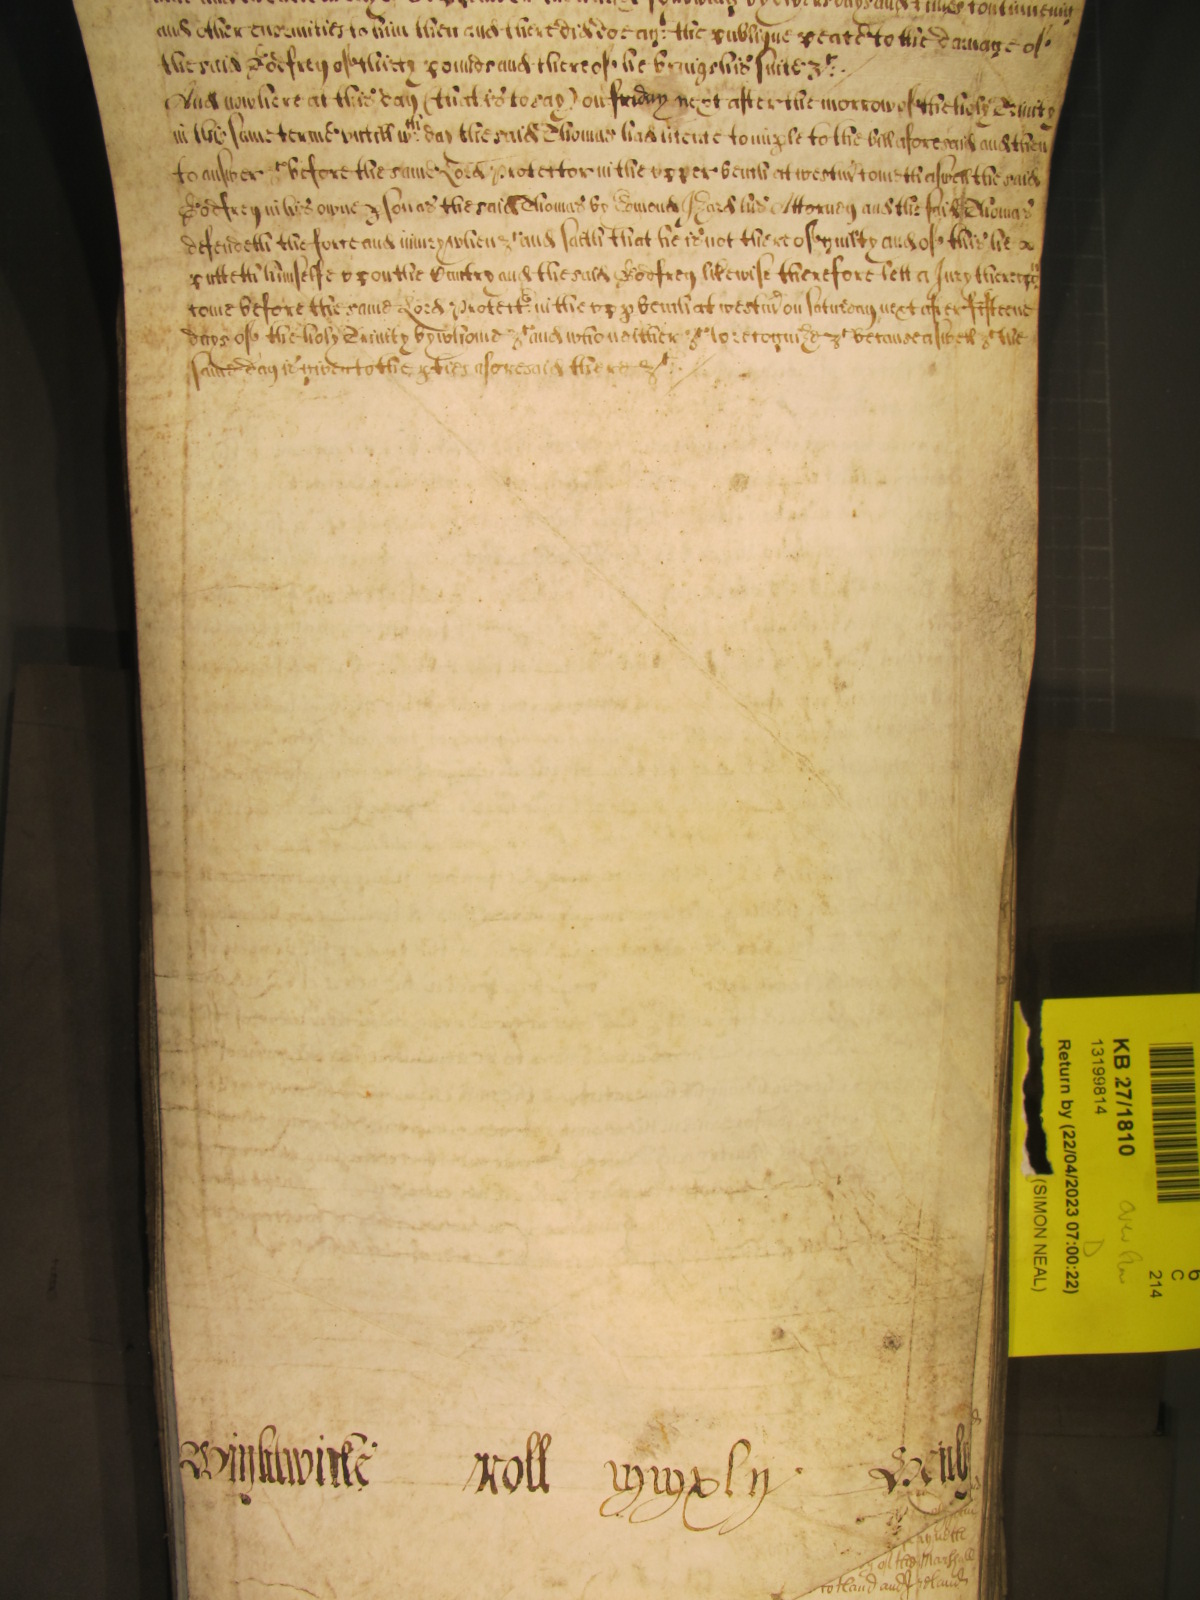 and other enormities to him then and there did doe agt the publique peace to the damage of
the said Godfrey of thirty pounds and thereof he brings his suite &c.
And now here at this day (that is to say) on friday next after the morrow of the holy Trinity
in this same terme untill wch day the said Thomas had licence to imple to the bill aforesaid and then
to answer &c before the same Lord Protector in the upper bench at westmr cometh aswell the said
Godfrey in his owne pson as the said Thomas by Edmond his Attorney and the said Thomas
defendeth the force and iniury when &c and saith that he is not thereof guilty and of this he
putteth himselfe upon the Cuntry and the said Godfrey likewise therefore lett a Jury thereupon
come before the same Lord Protectr in the upp bench at westmr on saturday next after fifteene
days of the holy Trinity by whome &c and who neither &c to recognize &c because aswell &c the
same day is given to the pties aforesaid there &c.
Roll
KB 27/1810
13199814
Return by (22/04/2023 07:00:22)
(SIMON NEAL)
6
C
214
D
of the Marshall
Scotland and Ireland